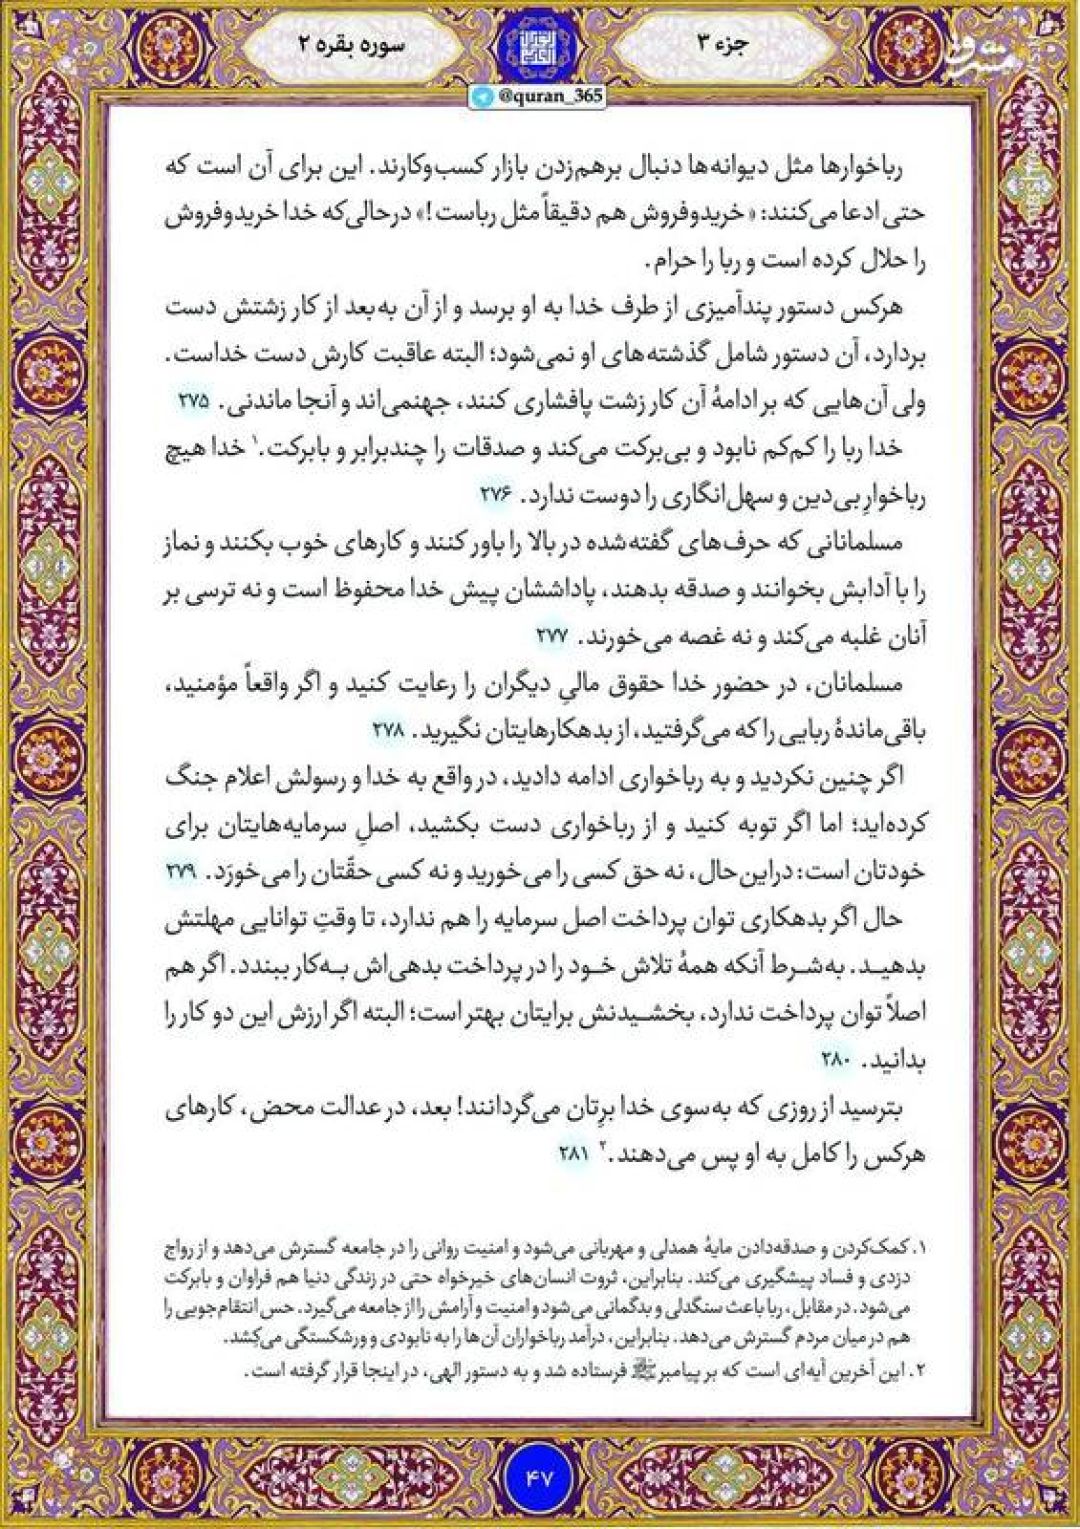 جزء ۳
سوره بقره ۲
@quran_365
مشرق
رباخوارها مثل دیوانه‌ها دنبال برهم‌زدن بازار کسب‌وکارند. این برای آن است که
حتی ادعا می‌کنند: «خریدوفروش هم دقیقاً مثل رباست!» درحالی‌که خدا خریدوفروش
را حلال کرده است و ربا را حرام.
هرکس دستور پندآمیزی از طرف خدا به او برسد و از آن به‌بعد از کار زشتش دست
بردارد، آن دستور شامل گذشته‌های او نمی‌شود؛ البته عاقبت کارش دست خداست.
ولی آن‌هایی که بر ادامهٔ آن کار زشت پافشاری کنند، جهنمی‌اند و آنجا ماندنی. ۲۷۵
خدا ربا را کم‌کم نابود و بی‌برکت می‌کند و صدقات را چندبرابر و بابرکت.۱ خدا هیچ
رباخوارِ بی‌دین و سهل‌انگاری را دوست ندارد. ۲۷۶
مسلمانانی که حرف‌های گفته‌شده در بالا را باور کنند و کارهای خوب بکنند و نماز
را با آدابش بخوانند و صدقه بدهند، پاداششان پیش خدا محفوظ است و نه ترسی بر
آنان غلبه می‌کند و نه غصه می‌خورند. ۲۷۷
مسلمانان، در حضور خدا حقوق مالیِ دیگران را رعایت کنید و اگر واقعاً مؤمنید،
باقی‌ماندهٔ ربایی را که می‌گرفتید، از بدهکارهایتان نگیرید. ۲۷۸
اگر چنین نکردید و به رباخواری ادامه دادید، در واقع به خدا و رسولش اعلام جنگ
کرده‌اید؛ اما اگر توبه کنید و از رباخواری دست بکشید، اصلِ سرمایه‌هایتان برای
خودتان است: دراین‌حال، نه حق کسی را می‌خورید و نه کسی حقّتان را می‌خورَد. ۲۷۹
حال اگر بدهکاری توان پرداخت اصل سرمایه را هم ندارد، تا وقتِ توانایی مهلتش
بدهید. به‌شرط آنکه همهٔ تلاش خود را در پرداخت بدهی‌اش به‌کار ببندد. اگر هم
اصلاً توان پرداخت ندارد، بخشیدنش برایتان بهتر است؛ البته اگر ارزش این دو کار را
بدانید. ۲۸۰
بترسید از روزی که به‌سوی خدا برِتان می‌گردانند! بعد، در عدالت محض، کارهای
هرکس را کامل به او پس می‌دهند.۲ ۲۸۱
۱. کمک‌کردن و صدقه‌دادن مایهٔ همدلی و مهربانی می‌شود و امنیت روانی را در جامعه گسترش می‌دهد و از رواج
دزدی و فساد پیشگیری می‌کند. بنابراین، ثروت انسان‌های خیرخواه حتی در زندگی دنیا هم فراوان و بابرکت
می‌شود. در مقابل، ربا باعث سنگدلی و بدگمانی می‌شود و امنیت و آرامش را از جامعه می‌گیرد. حس انتقام‌جویی را
هم در میان مردم گسترش می‌دهد. بنابراین، درآمد رباخواران آن‌ها را به نابودی و ورشکستگی می‌کِشد.
۲. این آخرین آیه‌ای است که بر پیامبرﷺ فرستاده شد و به دستور الهی، در اینجا قرار گرفته است.
۴۷